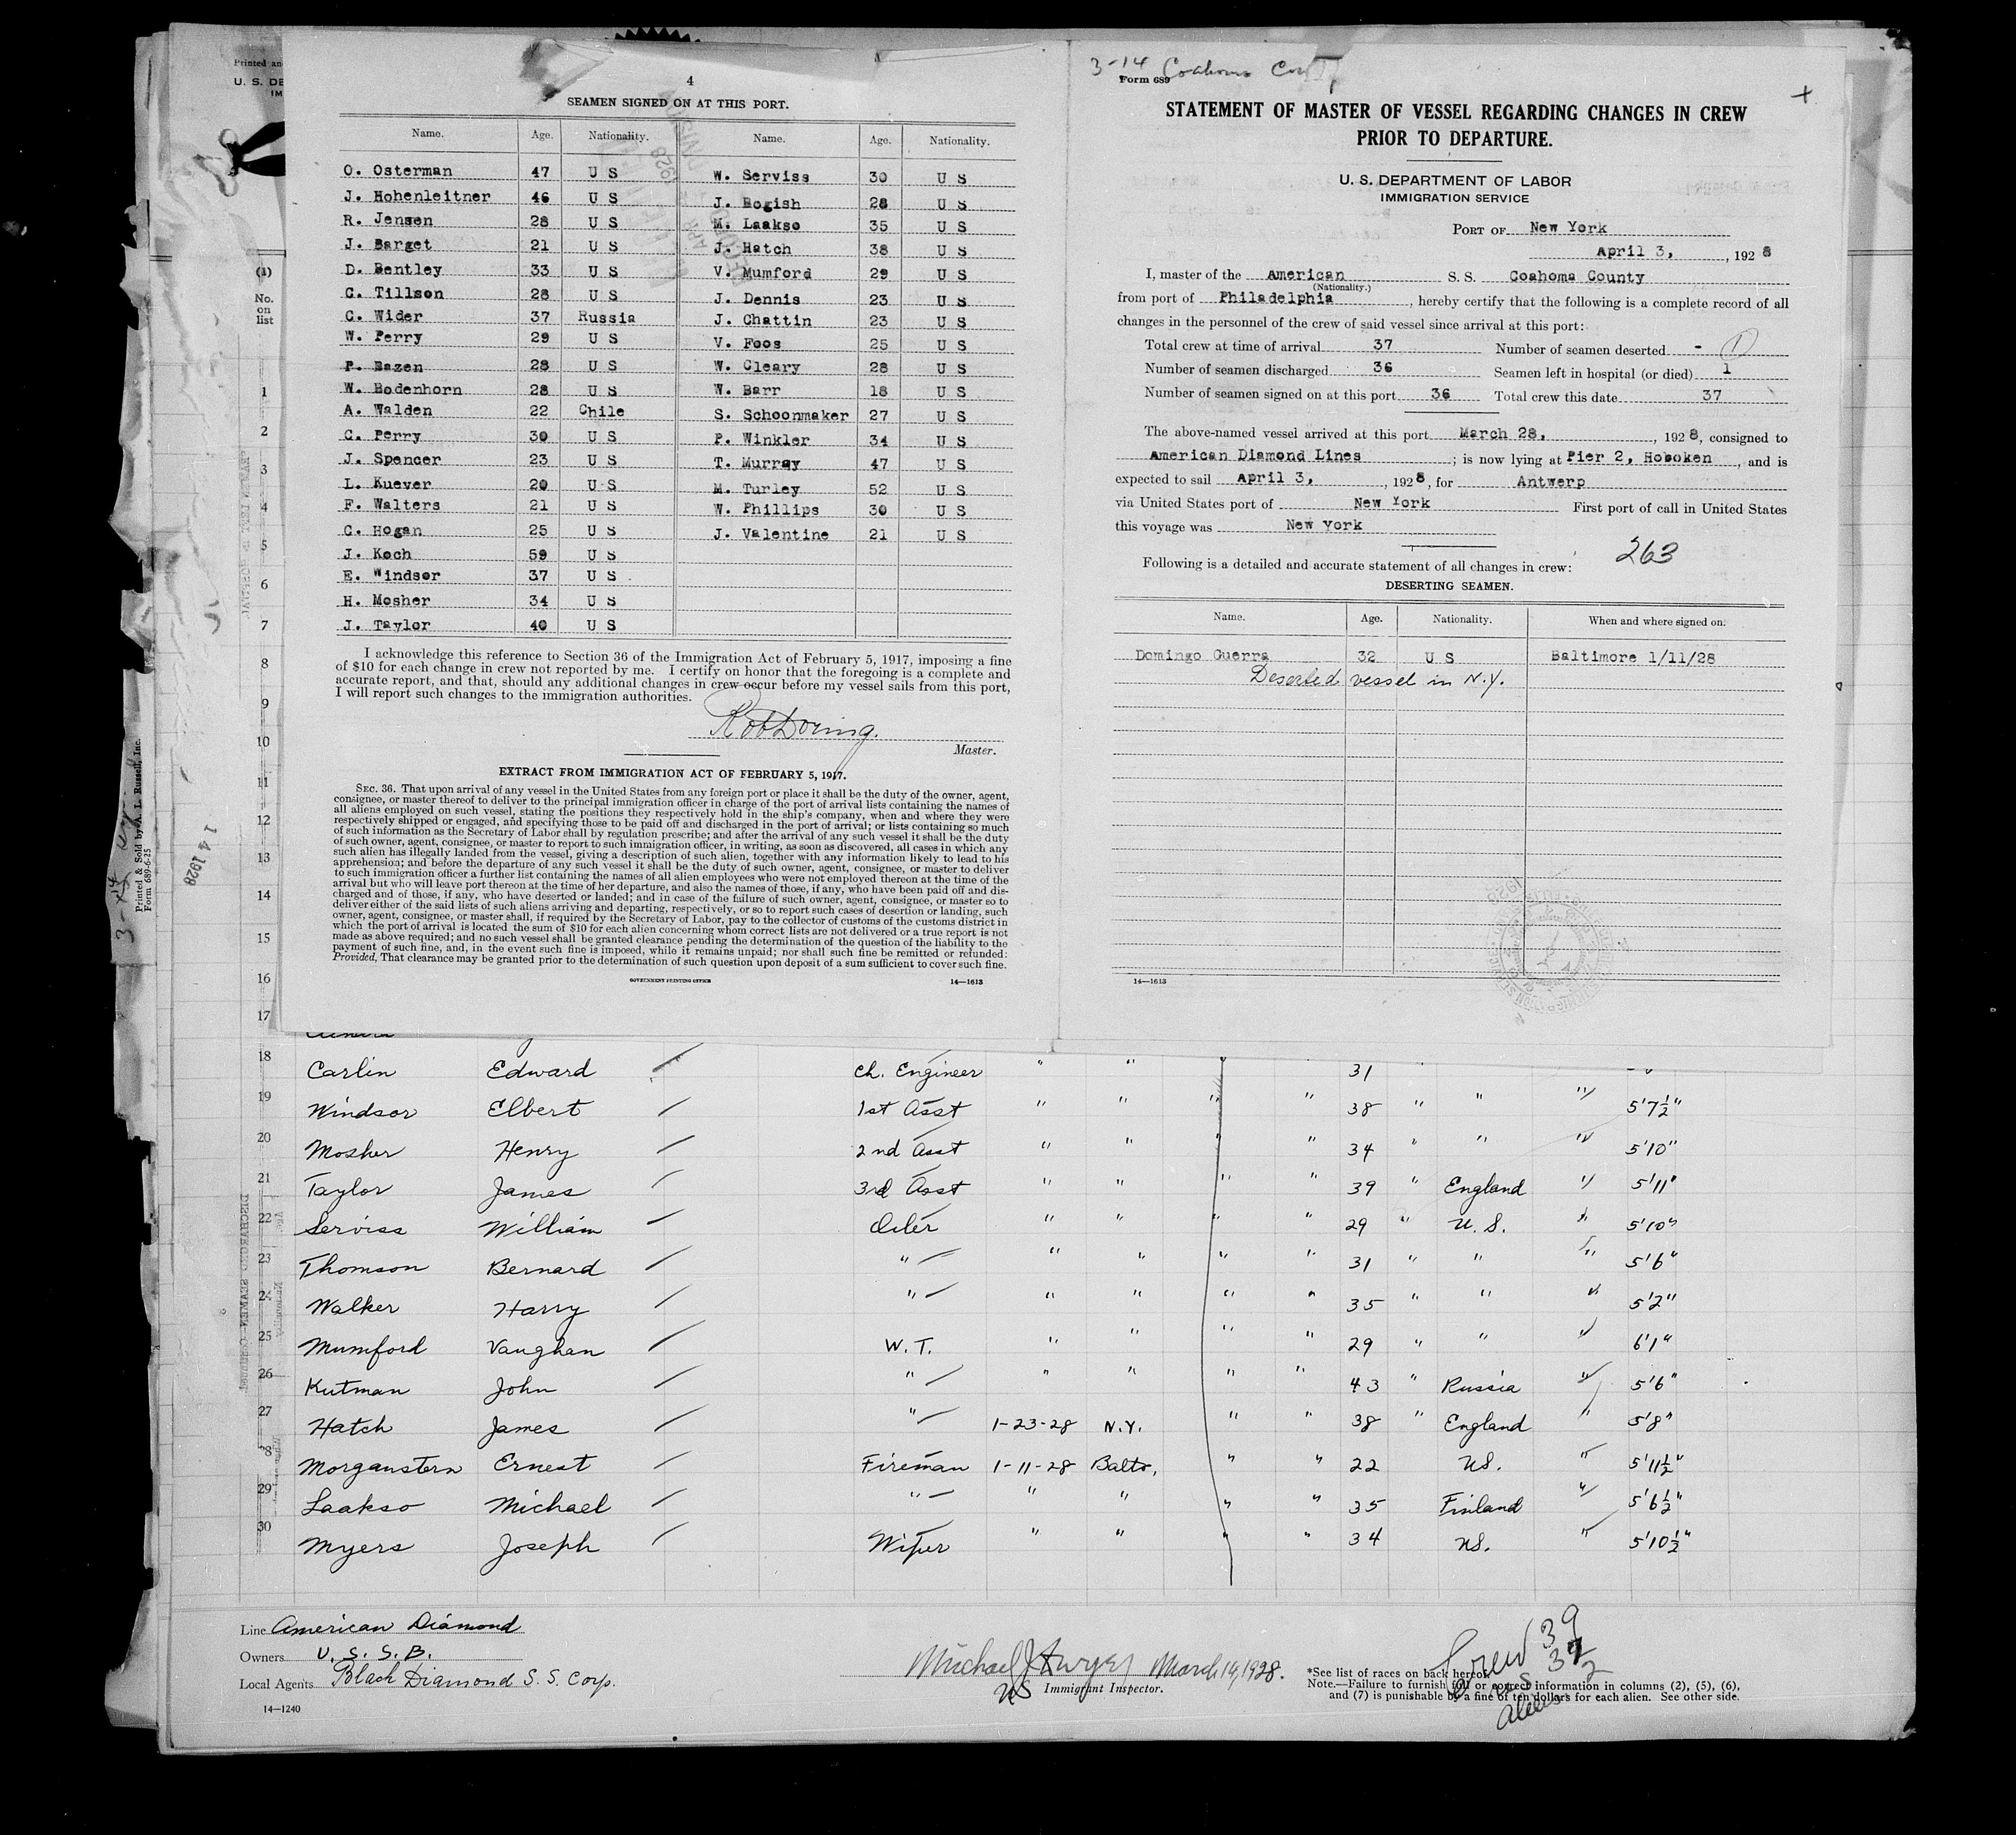 Printed an
U. S. DE
IM
4
SEAMEN SIGNED ON AT THIS PORT.
Name. Age. Nationality. Name. Age. Nationality.
O. Osterman 47 U S W. Serviss 30 U S
J. Hohenleitner 46 U S J. Rogish 28 U S
R. Jensen 28 U S M. Laakso 35 U S
J. Barget 21 U S J. Hatch 38 U S
D. Bentley 33 U S V. Mumford 29 U S
C. Tillson 28 U S J. Dennis 23 U S
C. Wider 37 Russia J. Chattin 23 U S
W. Perry 29 U S V. Foos 25 U S
P. Bazen 28 U S W. Cleary 28 U S
W. Bodenhorn 28 U S W. Barr 18 U S
A. Walden 22 Chile S. Schoonmaker 27 U S
C. Perry 30 U S P. Winkler 34 U S
J. Spencer 23 U S T. Murray 47 U S
L. Kuever 20 U S M. Turley 52 U S
F. Walters 21 U S W. Phillips 30 U S
C. Hogan 25 U S J. Valentine 21 U S
J. Koch 59 U S
E. Windsor 37 U S
H. Mosher 34 U S
J. Taylor 40 U S
I acknowledge this reference to Section 36 of the Immigration Act of February 5, 1917, imposing a fine
of $10 for each change in crew not reported by me. I certify on honor that the foregoing is a complete and
accurate report, and that, should any additional changes in crew occur before my vessel sails from this port,
I will report such changes to the immigration authorities.
Master.
EXTRACT FROM IMMIGRATION ACT OF FEBRUARY 5, 1917.
SEC. 36. That upon arrival of any vessel in the United States from any foreign port or place it shall be the duty of the owner, agent,
consignee, or master thereof to deliver to the principal immigration officer in charge of the port of arrival lists containing the names of
all aliens employed on such vessel, stating the positions they respectively hold in the ship's company, when and where they were
respectively shipped or engaged, and specifying those to be paid off and discharged in the port of arrival; or lists containing so much
of such information as the Secretary of Labor shall by regulation prescribe; and after the arrival of any such vessel it shall be the duty
of such owner, agent, consignee, or master to report to such immigration officer, in writing, as soon as discovered, all cases in which any
such alien has illegally landed from the vessel, giving a description of such alien, together with any information likely to lead to his
apprehension; and before the departure of any such vessel it shall be the duty of such owner, agent, consignee, or master to deliver
to such immigration officer a further list containing the names of all alien employees who were not employed thereon at the time of the
arrival but who will leave port thereon at the time of her departure, and also the names of those, if any, who have been paid off and dis-
charged and of those, if any, who have deserted or landed; and in case of the failure of such owner, agent, consignee, or master so to
deliver either of the said lists of such aliens arriving and departing, respectively, or so to report such cases of desertion or landing, such
owner, agent, consignee, or master shall, if required by the Secretary of Labor, pay to the collector of customs of the customs district in
which the port of arrival is located the sum of $10 for each alien concerning whom correct lists are not delivered or a true report is not
made as above required; and no such vessel shall be granted clearance pending the determination of the question of the liability to the
payment of such fine, and, in the event such fine is imposed, while it remains unpaid; nor shall such fine be remitted or refunded:
Provided, That clearance may be granted prior to the determination of such question upon deposit of a sum sufficient to cover such fine.
GOVERNMENT PRINTING OFFICE 14—1613
3-14 Coahoma
Form 689
STATEMENT OF MASTER OF VESSEL REGARDING CHANGES IN CREW
PRIOR TO DEPARTURE.
U. S. DEPARTMENT OF LABOR
IMMIGRATION SERVICE
PORT OF New York
April 3, , 192 8
I, master of the American S. S. Coahoma County
(Nationality.)
from port of Philadelphia, hereby certify that the following is a complete record of all
changes in the personnel of the crew of said vessel since arrival at this port:
Total crew at time of arrival 37 Number of seamen deserted - 1
Number of seamen discharged 36 Seamen left in hospital (or died) 1
Number of seamen signed on at this port 36 Total crew this date 37
The above-named vessel arrived at this port March 28, , 192 8, consigned to
American Diamond Lines ; is now lying at Pier 2, Hoboken , and is
expected to sail April 3, , 192 8, for Antwerp
via United States port of New York First port of call in United States
this voyage was New York
263
Following is a detailed and accurate statement of all changes in crew:
DESERTING SEAMEN.
Name. Age. Nationality. When and where signed on.
Domingo Guerra 32 U S Baltimore 1/11/28
Deserted vessel in N.Y.
14—1613
(1)
No.
on
list
1
2
3
4
5
6
7
8
9
10
11
12
13
14
15
16
17
Printed & Sold by A. L. Russell, Inc.
Form 689-6-25
14 1928
18 Carlin Edward Ch. Engineer " " 31
19 Windsor Elbert 1st Asst " " " " 38 " " " 5'7½"
20 Mosher Henry 2nd Asst " " " " 34 " " " 5'10"
21 Taylor James 3rd Asst " " " " 39 " England " 5'11"
22 Serviss William Oiler " " " " 29 " U.S. " 5'10"
23 Thomson Bernard " " " " " 31 " " " 5'6"
24 Walker Harry " " " " " 35 " " " 5'2"
25 Mumford Vaughan W.T. " " " " 29 " " " 6'1"
26 Kutman John " " " " " 43 " Russia " 5'6"
27 Hatch James " 1-23-28 N.Y. " " 38 " England " 5'8"
28 Morganstern Ernest Fireman 1-11-28 Balto, " " 22 US. " 5'11½"
29 Laakso Michael " " " " " 35 Finland " 5'6½"
30 Myers Joseph Wiper " " " " 34 US. " 5'10½"
Line American Diamond
Owners U.S.S.B.
Local Agents Black Diamond S.S. Corp.
14—1240
Michael J. Dwyer March 14, 1928.
US Immigrant Inspector.
Crew 39
US 37
Aliens 2
*See list of races on back hereof.
Note.—Failure to furnish full or correct information in columns (2), (5), (6),
and (7) is punishable by a fine of ten dollars for each alien. See other side.